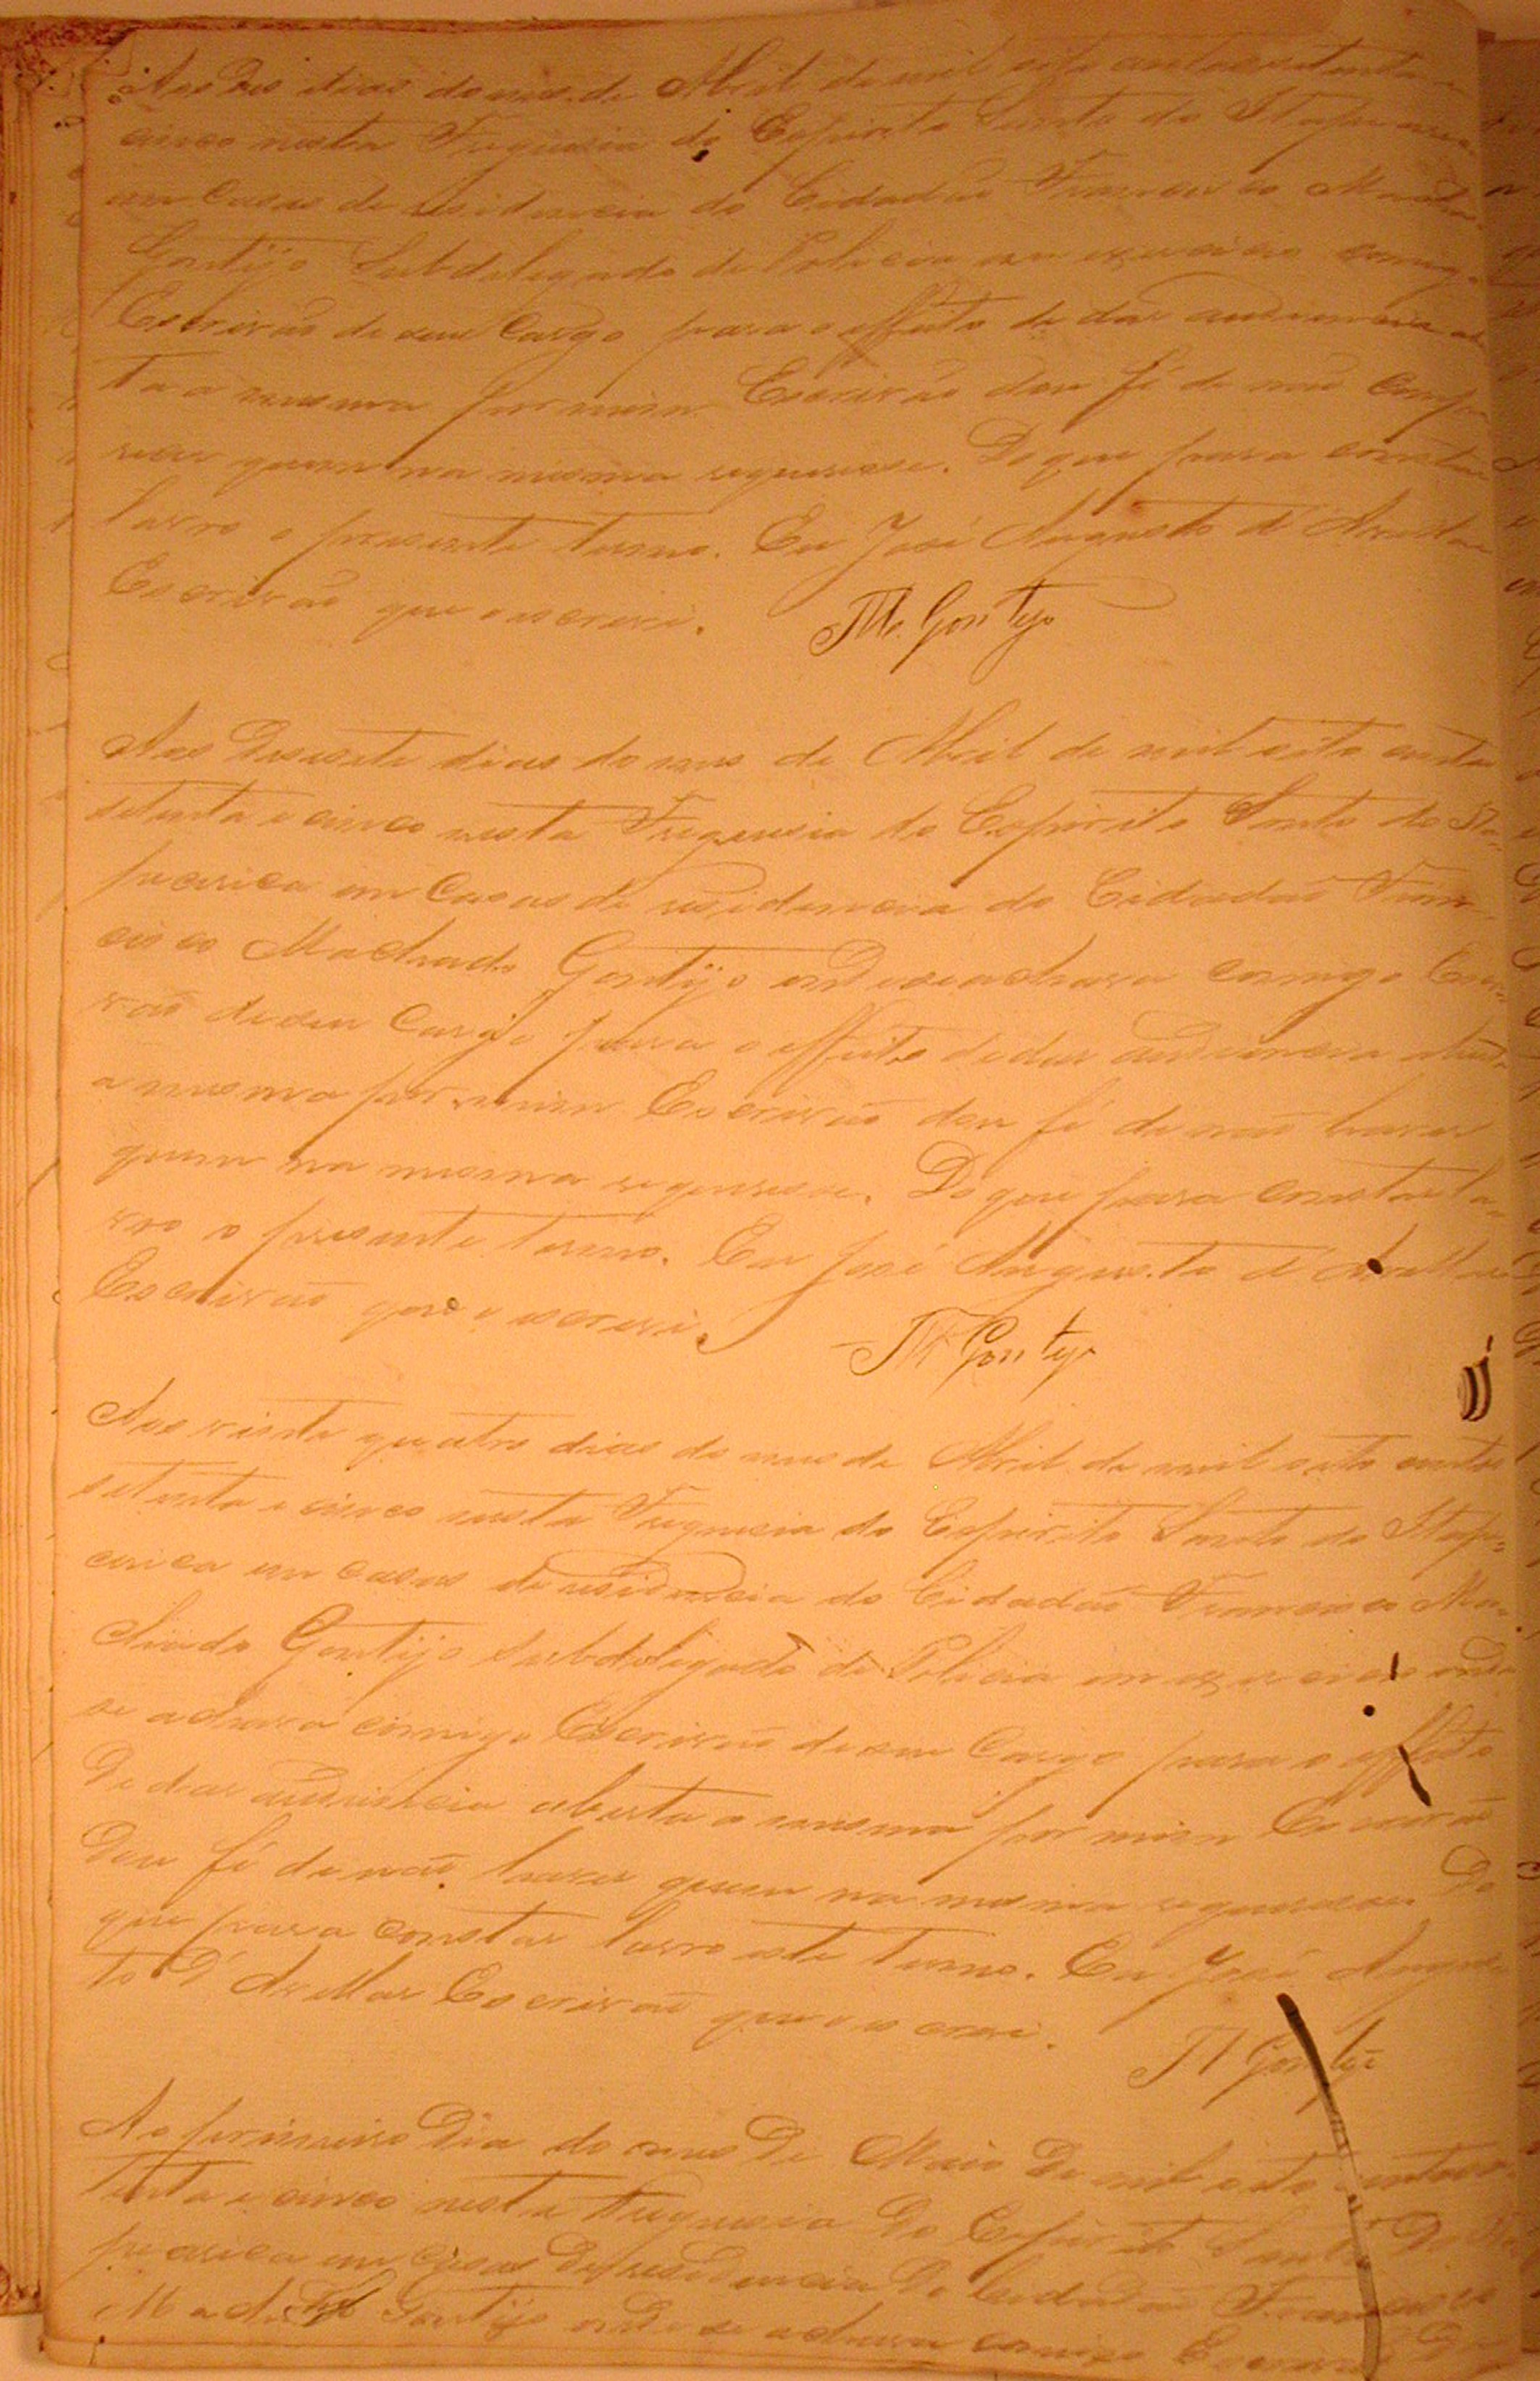 Aos dês dias do mes de Abril de mil oito centos setenta
cinco nesta Freguesia do Espirito Santo do Itapecerica
em Casas de residencia do Cidadão Francisco Machado
Gontijo Subdelegado de Policia em exercicio comigo
Escrivão de seu Cargo para o effeito de dar audiencia
ta a mesma por mim Escrivão dou fé de não Compa
recer quem na mesma requeresse. Do que para constar
lavro o presente termo. Eu José Augusto d'Avellar
Escrivão que o escrevi. M. Gontijo
Aos Desesete dias do mes de Abril de mil oito centos
setenta e cinco nesta Freguesia do Espirito Santo do Ita-
pecerica em Casas de residencia do Cidadão Fran-
cisco Machado Gontijo onde se achava comigo Escri-
vão de seu Cargo para o effeito de dar audiencia
a mesma por mim Escrivão dou fé de não haver
quem na mesma requeresse. Do que para constar la-
vro o presente termo. Eu José Augusto d'Avellar
Escrivão que o escrevi. Gontijo
Aos vinte quatro dias do mes de Abril de mil oito centos
setenta e cinco nesta Freguesia do Espirito Santo do Itape-
cerica em casas de residencia do Cidadão Francisco Ma-
chado Gontijo Subdelegado de Policia em exercicio onde
se achava comigo Escrivão de seu Cargo para o effeito
de dar audiencia aberta a mesma por mim Escrivão
Dou fé de não haver quem na mesma requeresse. Do
que para constar lavro este termo. Eu José Augus-
to D'Avellar Escrivão que o escrevi. Gontijo
Ao primeiro Dia do mes De Maio De mil oito centos se
tenta e cinco nesta Freguesia Do Espirito Santo Do Ita
pecerica em Casas De residencia Do Cidadão Francisco
Machado Gontijo onde se achava comigo Escrivão De